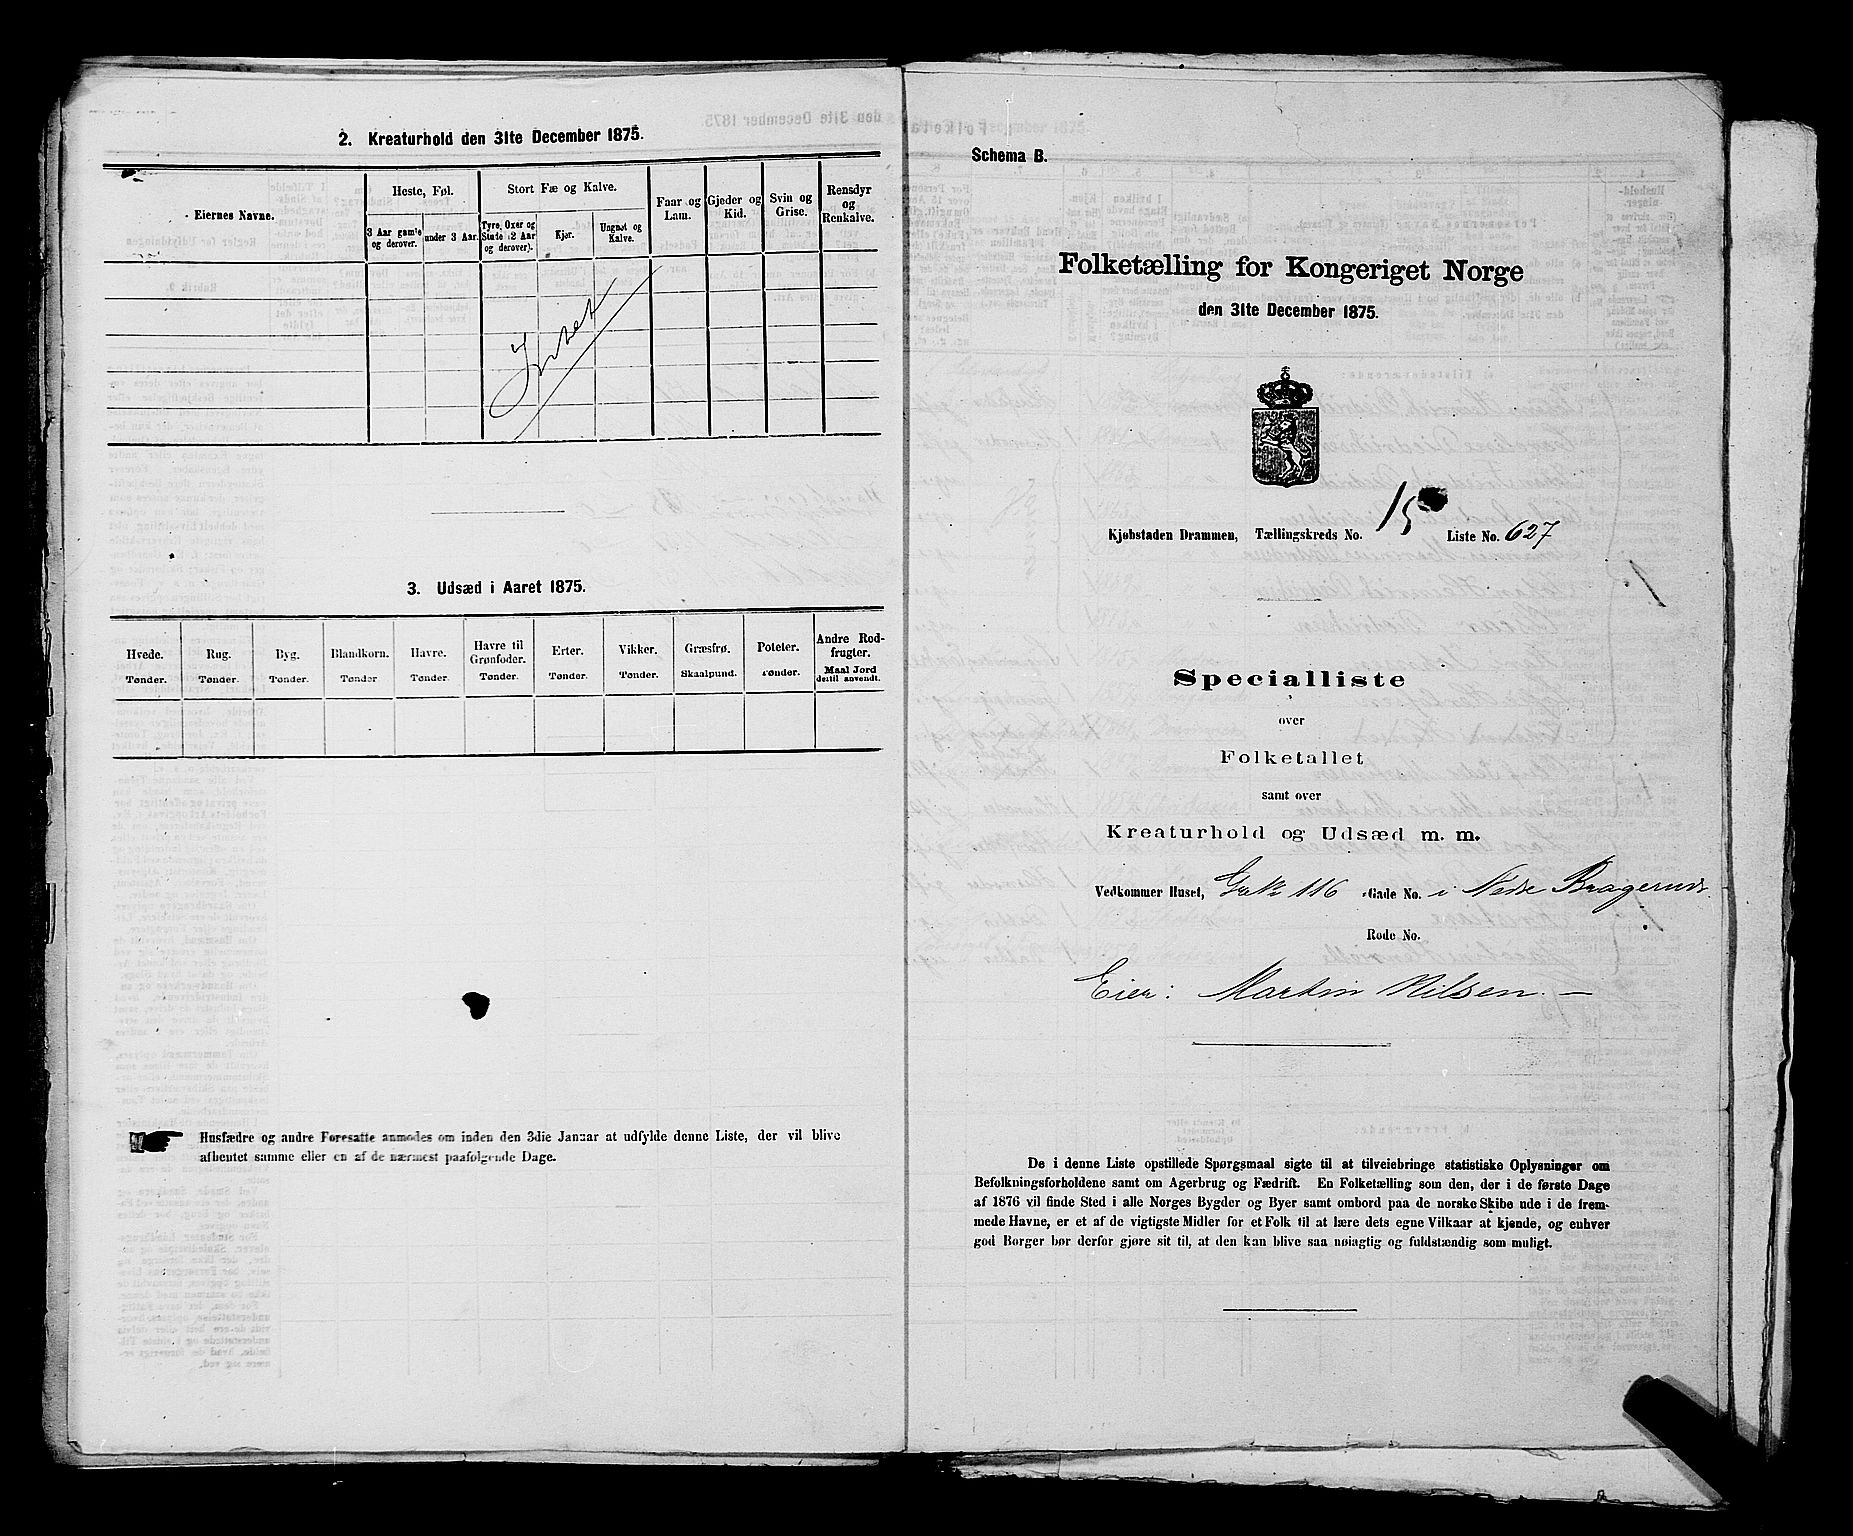 2. Kreaturhold den 31te December 1875.
Eiernes Navne.
Heste, Føl.
Stort Fæ og Kalve.
Faar og Lam.
Gjeder og Kid.
Svin og Grise.
Rensdyr og Renkalve.
3 Aar gamle og derover.
under 3 Aar.
Tyre, Oxer og Stude (2 Aar og derover).
Kjør.
Ungnøt og Kalve.
Intet
3. Udsæd i Aaret 1875.
Hvede. Tønder.
Rug. Tønder.
Byg. Tønder.
Blandkorn. Tønder
Havre. Tønder.
Havre til Grønfoder. Tønder.
Erter. Tønder.
Vikker. Tønder.
Græsfrø. Skaalpund.
Poteter. Tønder.
Andre Rodfrugter. Maal Jord dertil anvendt.
Husfædre og andre Foresatte anmodes om inden den 3die Januar at udfylde denne Liste, der vil blive
afhentet samme eller en af de nærmest paafølgende Dage.
Schema B.
Folketælling for Kongeriget Norge
den 31te December 1875.
Kjøbstaden Drammen, Tællingskreds No. 15 Liste No. 627
Specialliste
over
Folketallet
samt over
Kreaturhold og Udsæd m. m.
Vedkommer Huset, 116 Gade No. i Nedre Bragernes
Rode No.
Eier: Martin Nilsen. —
De i denne Liste opstillede Spørgsmaal sigte til at tilveiebringe statistiske Oplysninger om
Befolkningsforholdene samt om Agerbrug og Fædrift. En Folketælling som den, der i de første Dage
af 1876 vil finde Sted i alle Norges Bygder og Byer samt ombord paa de norske Skibe ude i de frem-
mede Havne, er et af de vigtigste Midler for et Folk til at lære dets egne Vilkaar at kjende, og enhver
god Borger bør derfor gjøre sit til, at den kan blive saa nøiagtig og fuldstændig som muligt.